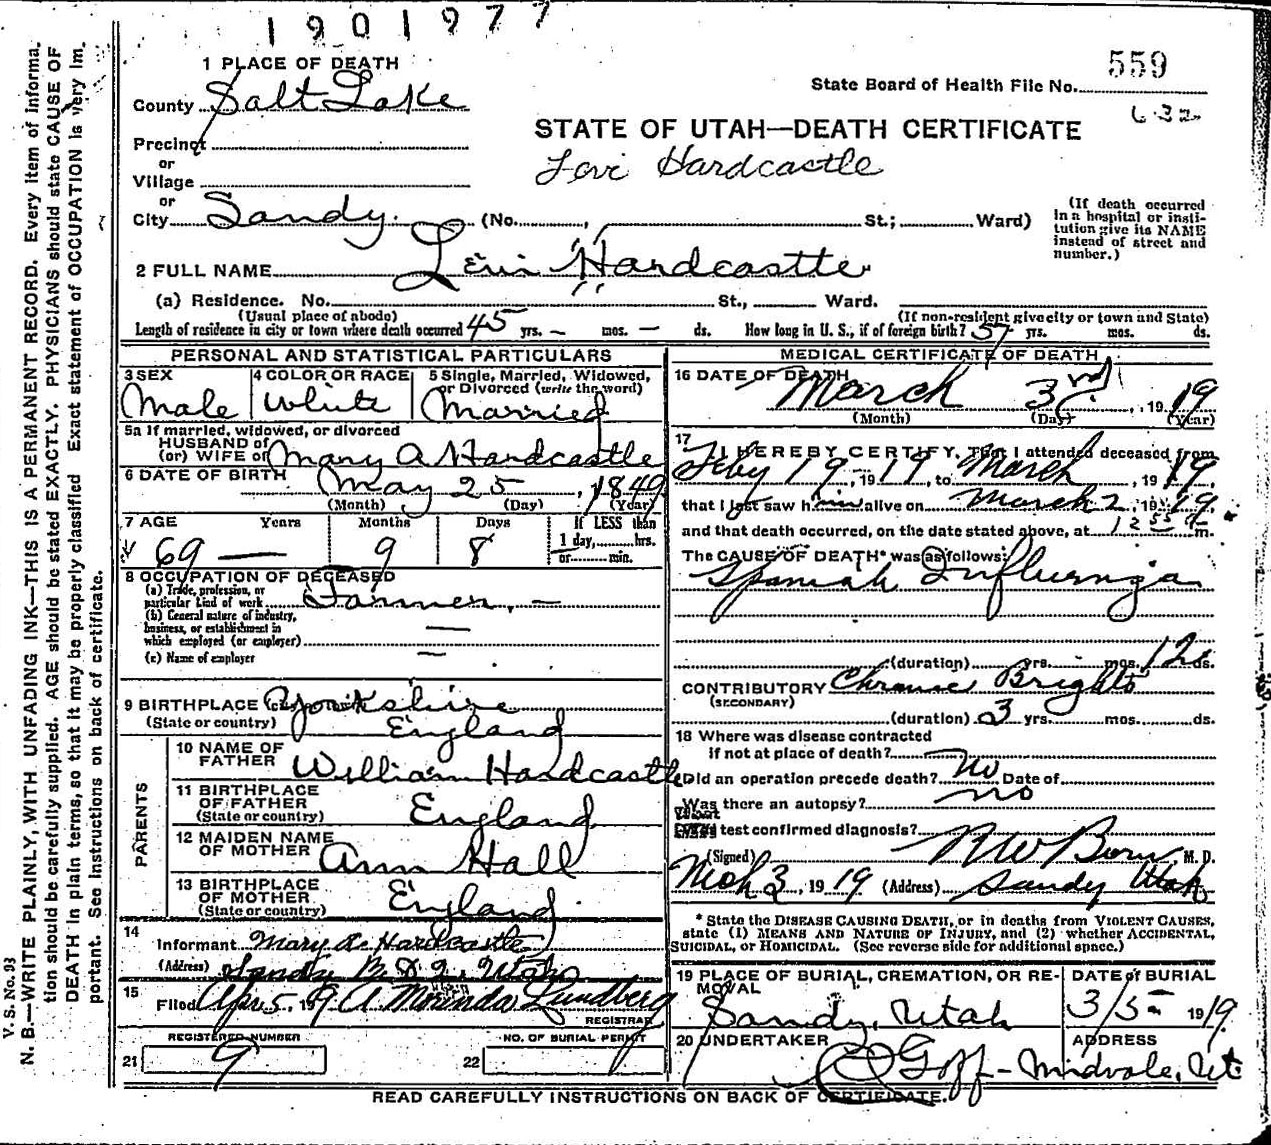 1901977
1 PLACE OF DEATH
559
State Board of Health File No.
County Salt Lake
632
STATE OF UTAH—DEATH CERTIFICATE
Precinct
Levi Hardcastle
or
Village
or
City Sandy. (No. St.; Ward)
(If death occurred in a hospital or insti-
tution give its NAME
instead of street and
number.)
2 FULL NAME Levi Hardcastle
(a) Residence. No. St., Ward.
(Usual place of abode) (If non-resident give city or town and State)
Length of residence in city or town where death occurred 45 yrs. — mos. — ds. How long in U. S., if of foreign birth? 57 yrs. mos. ds.
PERSONAL AND STATISTICAL PARTICULARS
3 SEX Male
4 COLOR OR RACE White
5 Single, Married, Widowed,
or Divorced (write the word)
Married
5a If married, widowed, or divorced
HUSBAND of
(or) WIFE of Mary A Hardcastle
6 DATE OF BIRTH May 25, 1849
(Month) (Day) (Year)
7 AGE Years Months Days If LESS than
69 — 9 8 1 day, hrs.
or min.
8 OCCUPATION OF DECEASED
(a) Trade, profession, or
particular kind of work Farmer. —
(b) General nature of industry,
business, or establishment in
which employed (or employer) —
(c) Name of employer —
9 BIRTHPLACE Yorkshire
(State or country) England
PARENTS
10 NAME OF
FATHER William Hardcastle
11 BIRTHPLACE
OF FATHER
(State or country) England
12 MAIDEN NAME
OF MOTHER Ann Hall
13 BIRTHPLACE
OF MOTHER
(State or country) England
14
Informant Mary A. Hardcastle
(Address) Sandy Utah
15
Filed Apr 5, 19 19 A Morinda Lundberg
REGISTRAR
REGISTERED NUMBER NO. OF BURIAL PERMIT
21 9 22
MEDICAL CERTIFICATE OF DEATH
16 DATE OF DEATH
March 3rd, 19 19
(Month) (Day) (Year)
17
I HEREBY CERTIFY, That I attended deceased from
Feby 19, 19 19, to March, 19 19,
that I last saw him alive on March 2, 19 19
and that death occurred, on the date stated above, at 12 55 m.
The CAUSE OF DEATH* was as follows:
Spanish Influenza
(duration) yrs. mos. 12 ds.
CONTRIBUTORY Chronic Brights
(SECONDARY)
(duration) 3 yrs. mos. ds.
18 Where was disease contracted
if not at place of death?
Did an operation precede death? No Date of
Was there an autopsy? no
What
test confirmed diagnosis?
(Signed) M. D.
Mch 3, 19 19 (Address) Sandy Utah
* State the DISEASE CAUSING DEATH, or in deaths from VIOLENT CAUSES,
state (1) MEANS AND NATURE OF INJURY, and (2) whether ACCIDENTAL,
SUICIDAL, or HOMICIDAL. (See reverse side for additional space.)
19 PLACE OF BURIAL, CREMATION, OR RE-
MOVAL
Sandy, Utah
DATE of BURIAL
3/5 — 19 19.
20 UNDERTAKER ADDRESS
Goff - Midvale, Ut
READ CAREFULLY INSTRUCTIONS ON BACK OF CERTIFICATE.
V. S. No. 93
N. B.—WRITE PLAINLY, WITH UNFADING INK—THIS IS A PERMANENT RECORD. Every item of informa-
tion should be carefully supplied. AGE should be stated EXACTLY. PHYSICIANS should state CAUSE OF
DEATH in plain terms, so that it may be properly classified Exact statement of OCCUPATION is very im-
portant. See instructions on back of certificate.